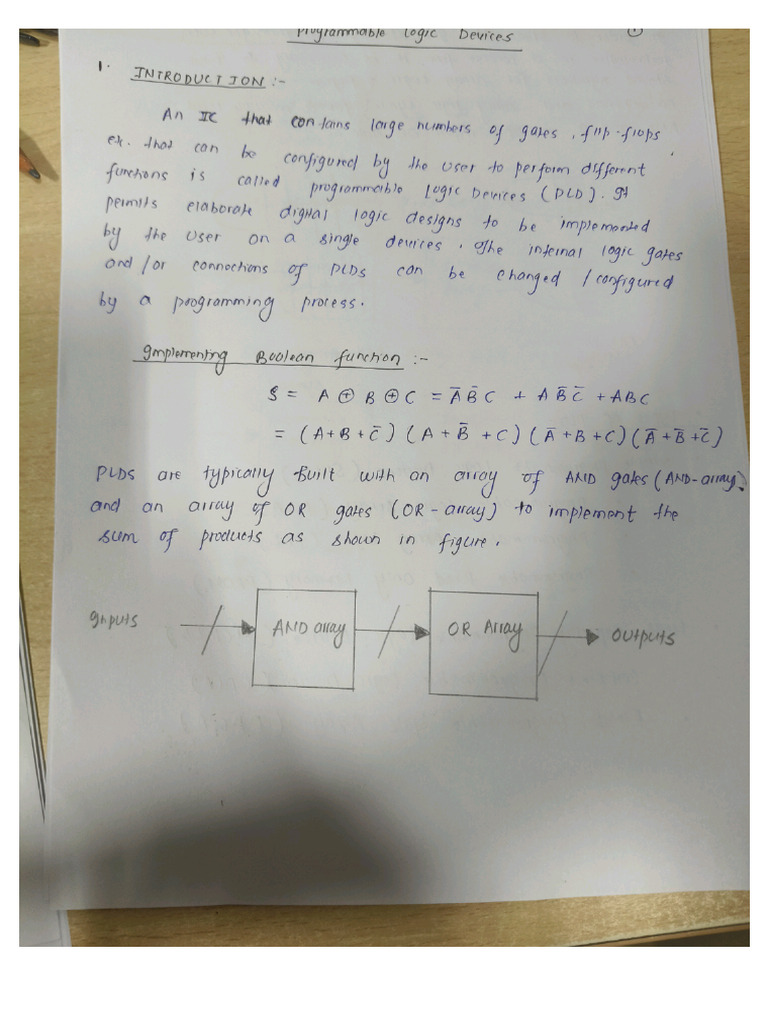 Programmable Logic Devices
1. INTRODUCTION :-
An IC that contains large numbers of gates, flip-flops
ex. that can be configured by the user to perform different
functions is called programmable Logic Devices (PLD). It
permits elaborate digital logic designs to be implemented
by the user on a single devices. The internal logic gates
and/or connections of PLDs can be changed / configured
by a programming process.
Implementing Boolean function :-
S = A ⊕ B ⊕ C = A̅ B̅ C + A B̅ C̅ + ABC
= (A+B+C̅) (A + B̅ + C) (A̅ + B + C) (A̅ + B̅ + C̅)
PLDS are typically built with an array of AND gates (AND-array)
and an array of OR gates (OR-array) to implement the
sum of products as shown in figure.
Inputs AND array OR Array Outputs